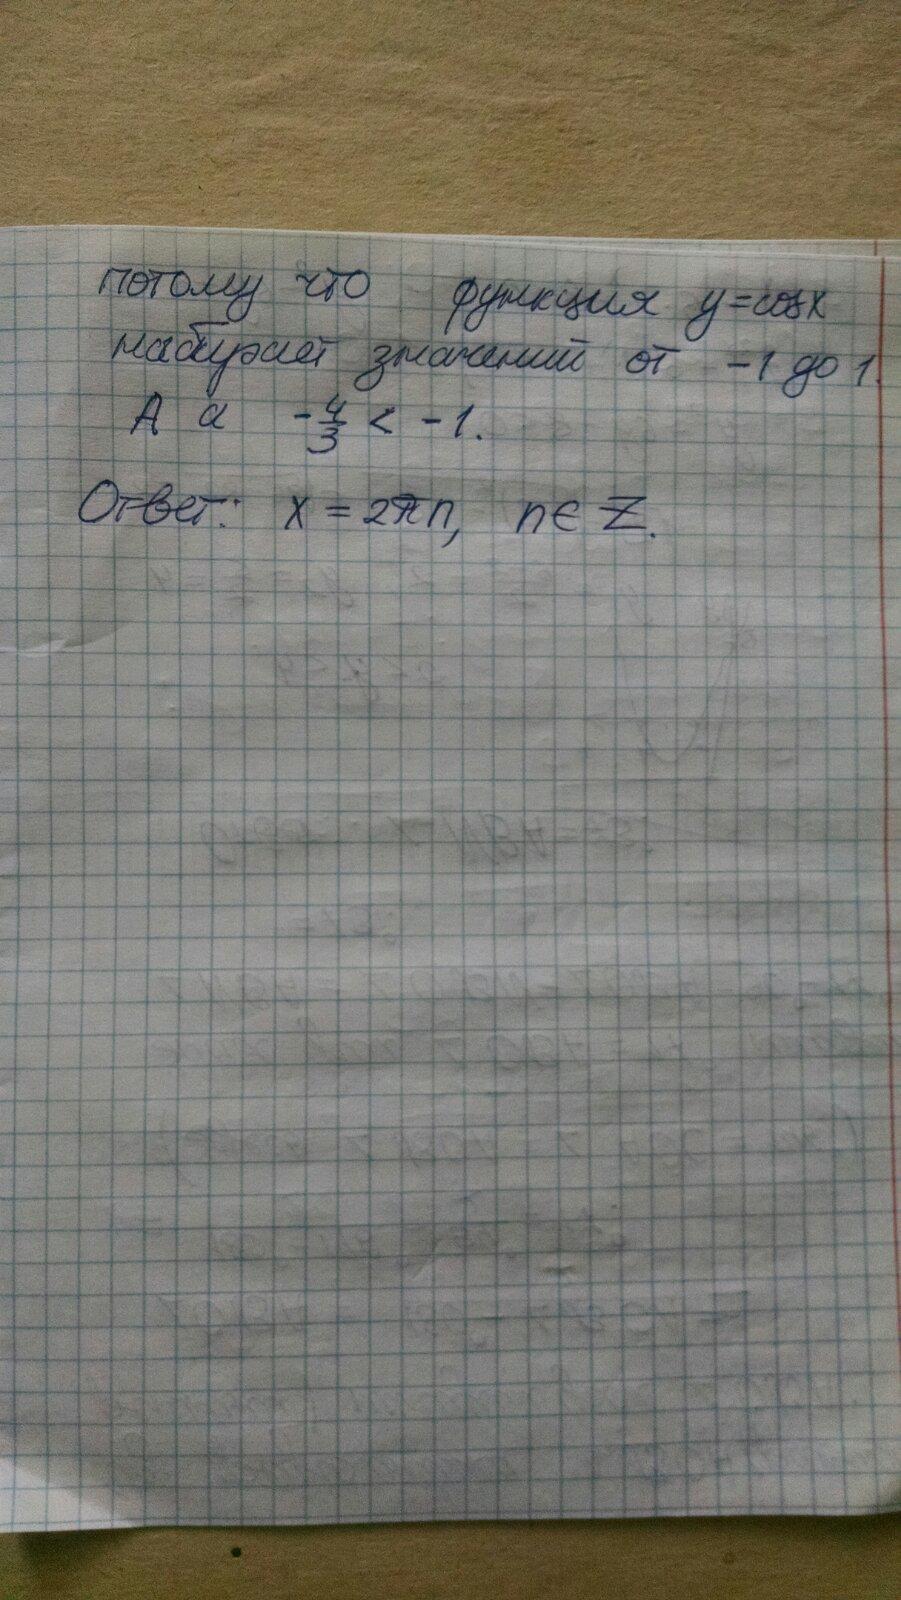 потому что функция y=cosx
набирает значений от -1 до 1.
А а -4/3 < -1.
Ответ: x = 2πn, n ∈ Z.